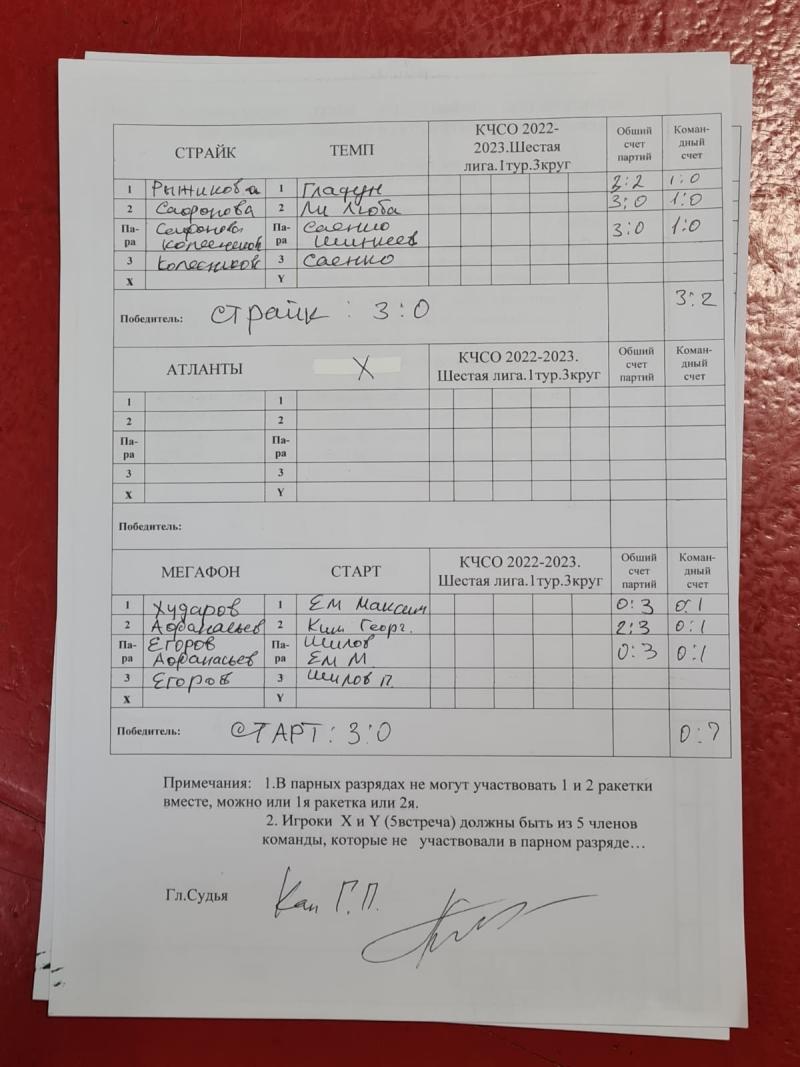 СТРАЙК ТЕМП КЧСО 2022-2023.Шестая лига.1тур.3круг Общий счет партий Команд-ный счет
1 Рыжикова 1 Гладун 3:2 1:0
2 Сафонова 2 Ли Люба 3:0 1:0
Па-ра Сафонова Па-ра Саенко 3:0 1:0
Колесников Шинкеев
3 Колесников 3 Саенко
X Y
Победитель: Страйк : 3:0 3:2
АТЛАНТЫ X КЧСО 2022-2023. Шестая лига.1тур.3круг Общий счет партий Коман-дный счет
1 1
2 2
Па-ра Па-ра
3 3
X Y
Победитель:
МЕГАФОН СТАРТ КЧСО 2022-2023. Шестая лига.1тур.3круг Общий счет партий Коман-дный счет
1 Хударов 1 Ем Максим 0:3 0:1
2 Афанасьев 2 Ким Георг. 2:3 0:1
Па-ра Егоров Па-ра Шилов 0:3 0:1
Афанасьев Ем М.
3 Егоров 3 Шилов П.
X Y
Победитель: СТАРТ: 3:0 0:?
Примечания: 1.В парных разрядах не могут участвовать 1 и 2 ракетки
вместе, можно или 1я ракетка или 2я.
2. Игроки X и Y (5встреча) должны быть из 5 членов
команды, которые не участвовали в парном разряде…
Гл.Судья Кан Г.П.